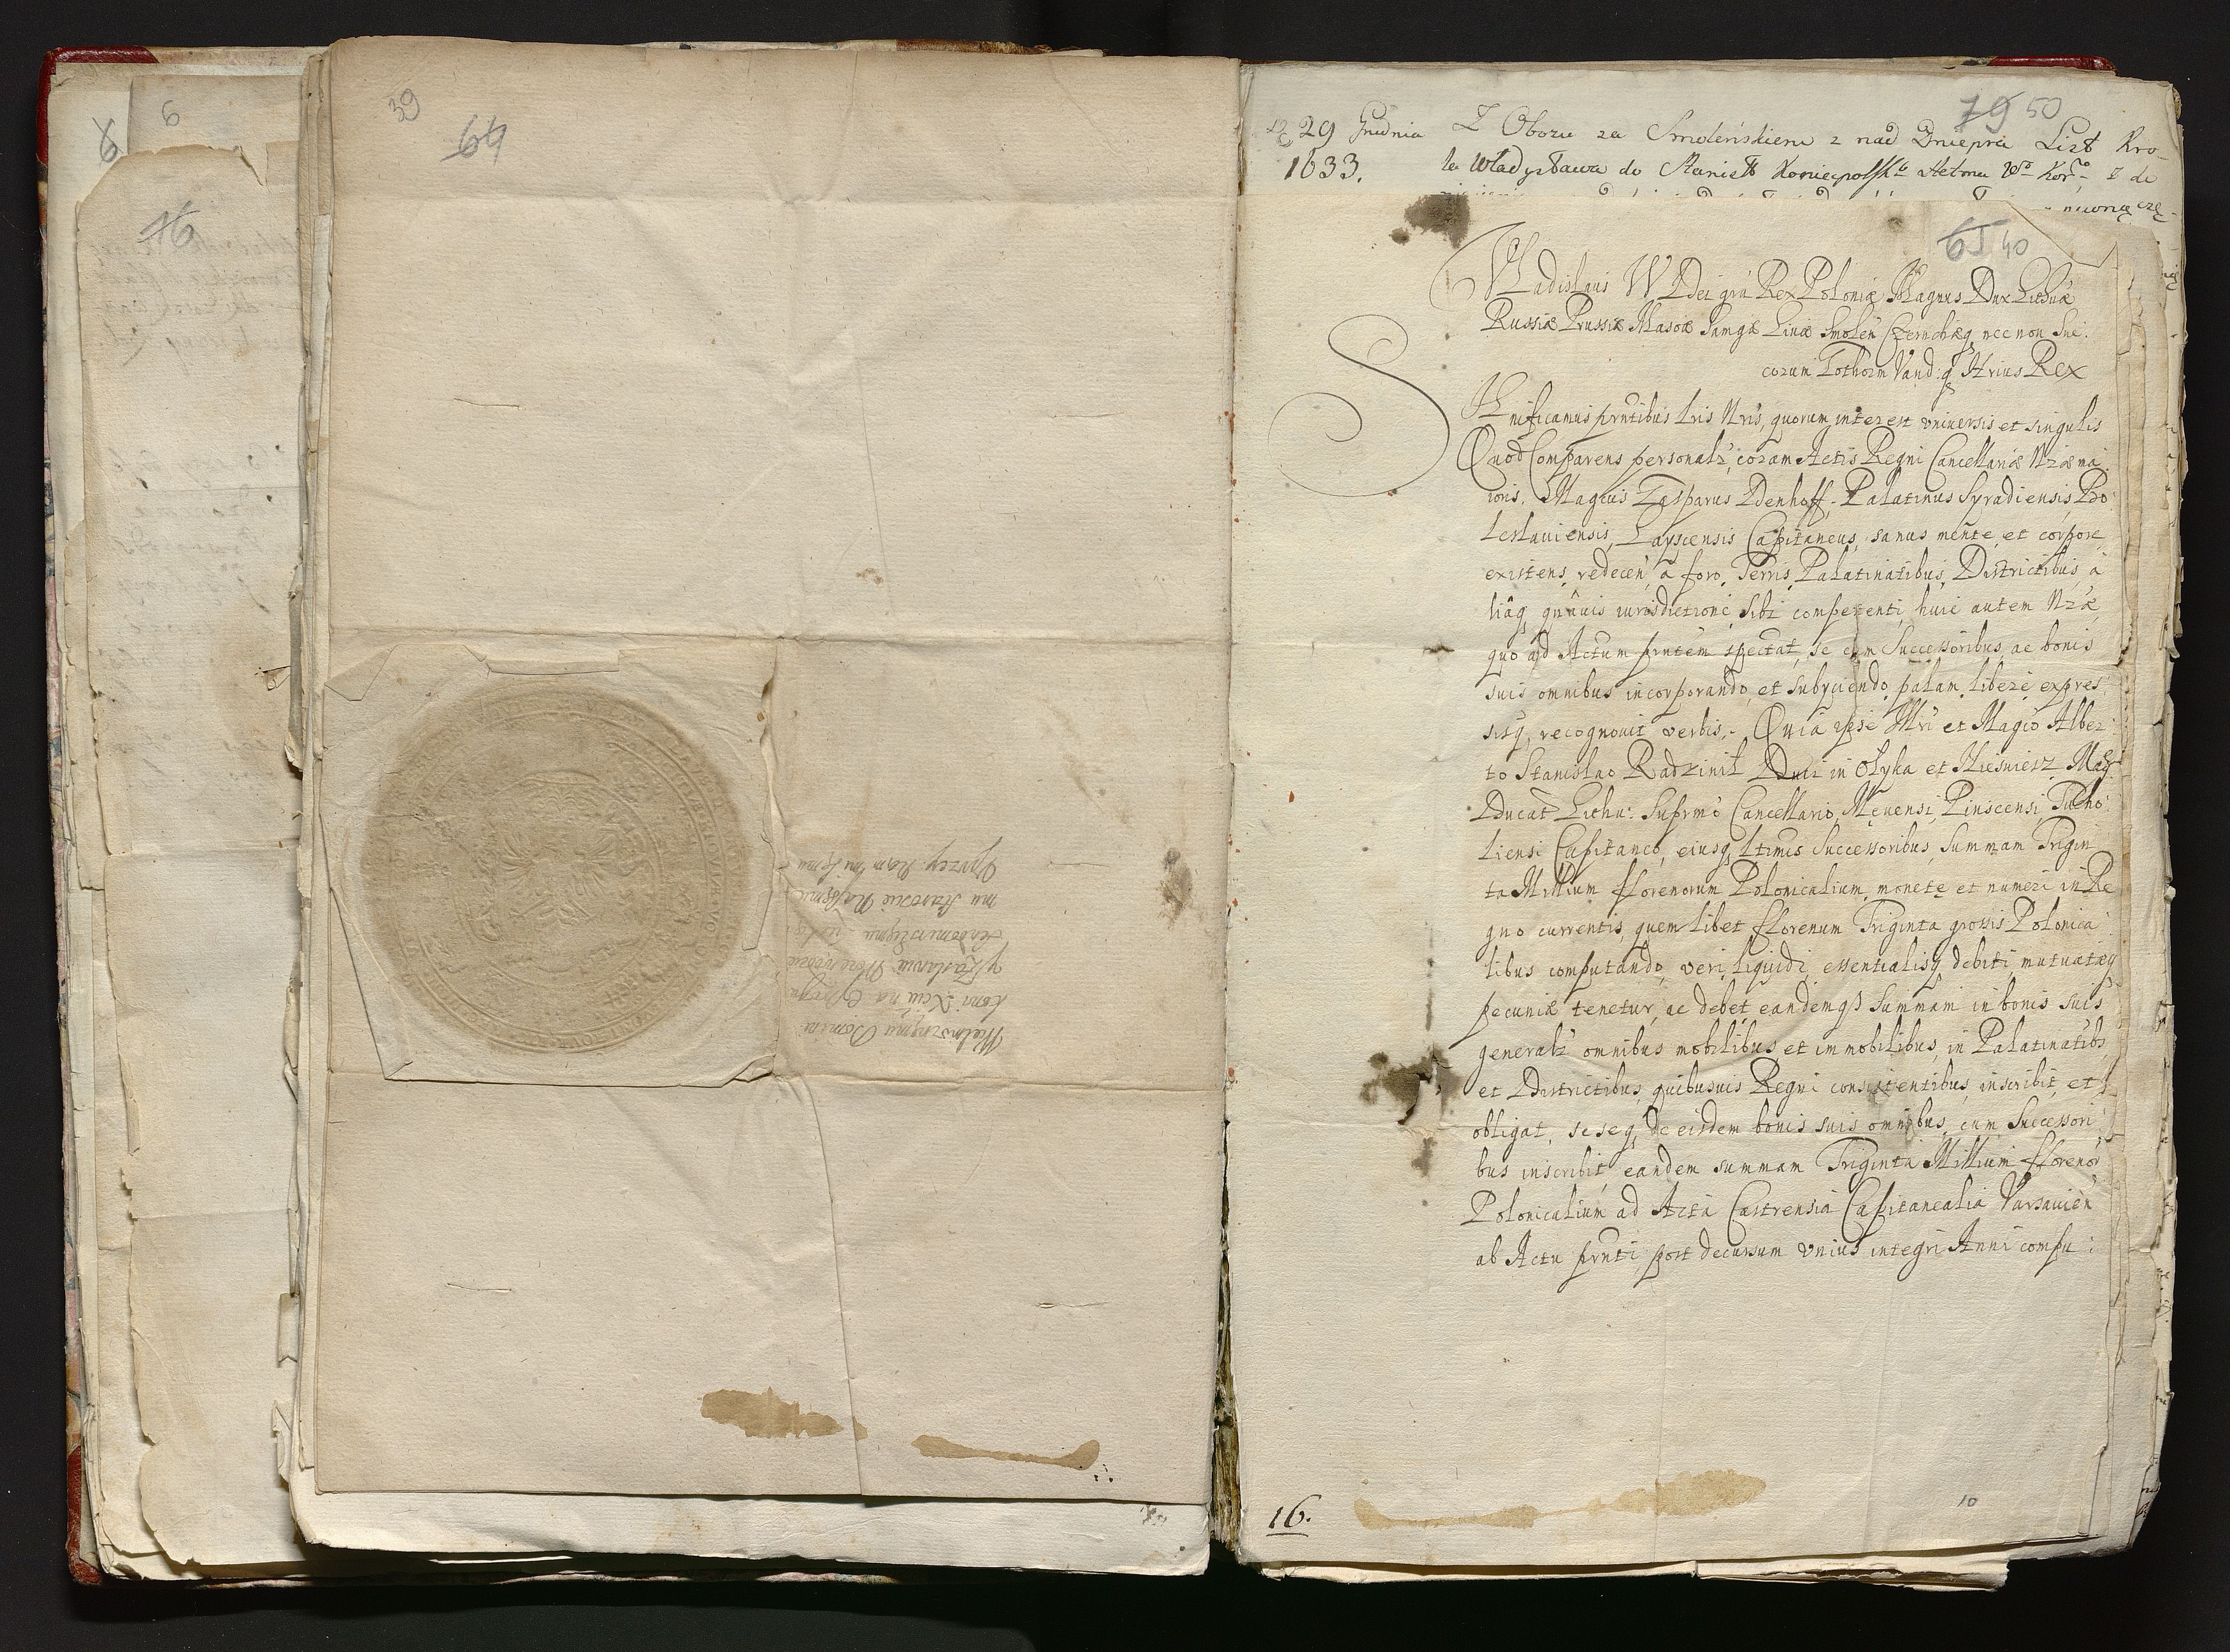 6
6
16
39
64
Wielmoznemu Domini
kowi Xciu na Ostrogu
y Zaslawiu Woiewodzie
Sendomirskiemu
mu Staroscie
Vprzey: nam milemu
79 50
29 Grudnia
1633.
Z Obozu za Smoleńskiem z nad Dniepra List Kro-
la Władysława do Stanisł Koniecpolskº Hetma Wº Korº
65 40
Vladislaus IV Dei grā Rex Poloniæ Magnus Dux Lithuæ
Russiæ Prussiæ Masoiæ Samgæ Liuiæ Smolen Czernihæq, nec non Sue:
corum Gothorm Vand:q Hrius Rex
Significamus prntibus Lris Nris, quorum interest vniuersis et singulis
Quod Comparens personalr, coram Actis Regni Cancellariæ Nræ ma:
ioris. Magcus Gasparus Denhoff, Palatinus Syradiensis, Bo:
leslauiensis, Capitaneus, sanus mente, et corpore
existens, redecen, a foro, Terris, Palatinatibus, Districtibus, a
liaq, quauis iurisdictione sibi competenti, huic autem Nræ
quo ad Actum prntem spectat, se cum Successoribus, ac bonis
suis omnibus incorporando, et subyciendo, palam libere expres
sisq, recognouit verbis. Quia ipse Illri et Magco Alber:
to Stanislao Radziuil Duci in Olyka et Niesuiesz Mag
Ducat Lithu: Suprmo Cancellario, Meuensi, Pinscensi, Tucho:
liensi Capitaneo, eiusq Ltimis Successoribus, Summam Trigin
ta Millium florenorum Polonicalium, monete et numeri in Re
gno currentis, quemlibet florenum Triginta grossis Polonica:
libus computando, veri, liquidi, essentialisq debiti, mutuatæq
pecuniæ tenetur, ac debet, eandemq Summam in bonis suis
generalr omnibus mobilibus et immobilibus, in Palatinatibs,
et Districtibus, quibusuis Regni consistentibus, inscribit, et
obligat, seseq, de eisdem bonis suis omnibus, cum Successori:
bus inscribit, eandem summam Triginta Millium florenor
Polonicalium ad Acta Castrensia Capitanealia Varsauien
ab Actu prnti, post decursum vnius integri Anni compu:
16.
10